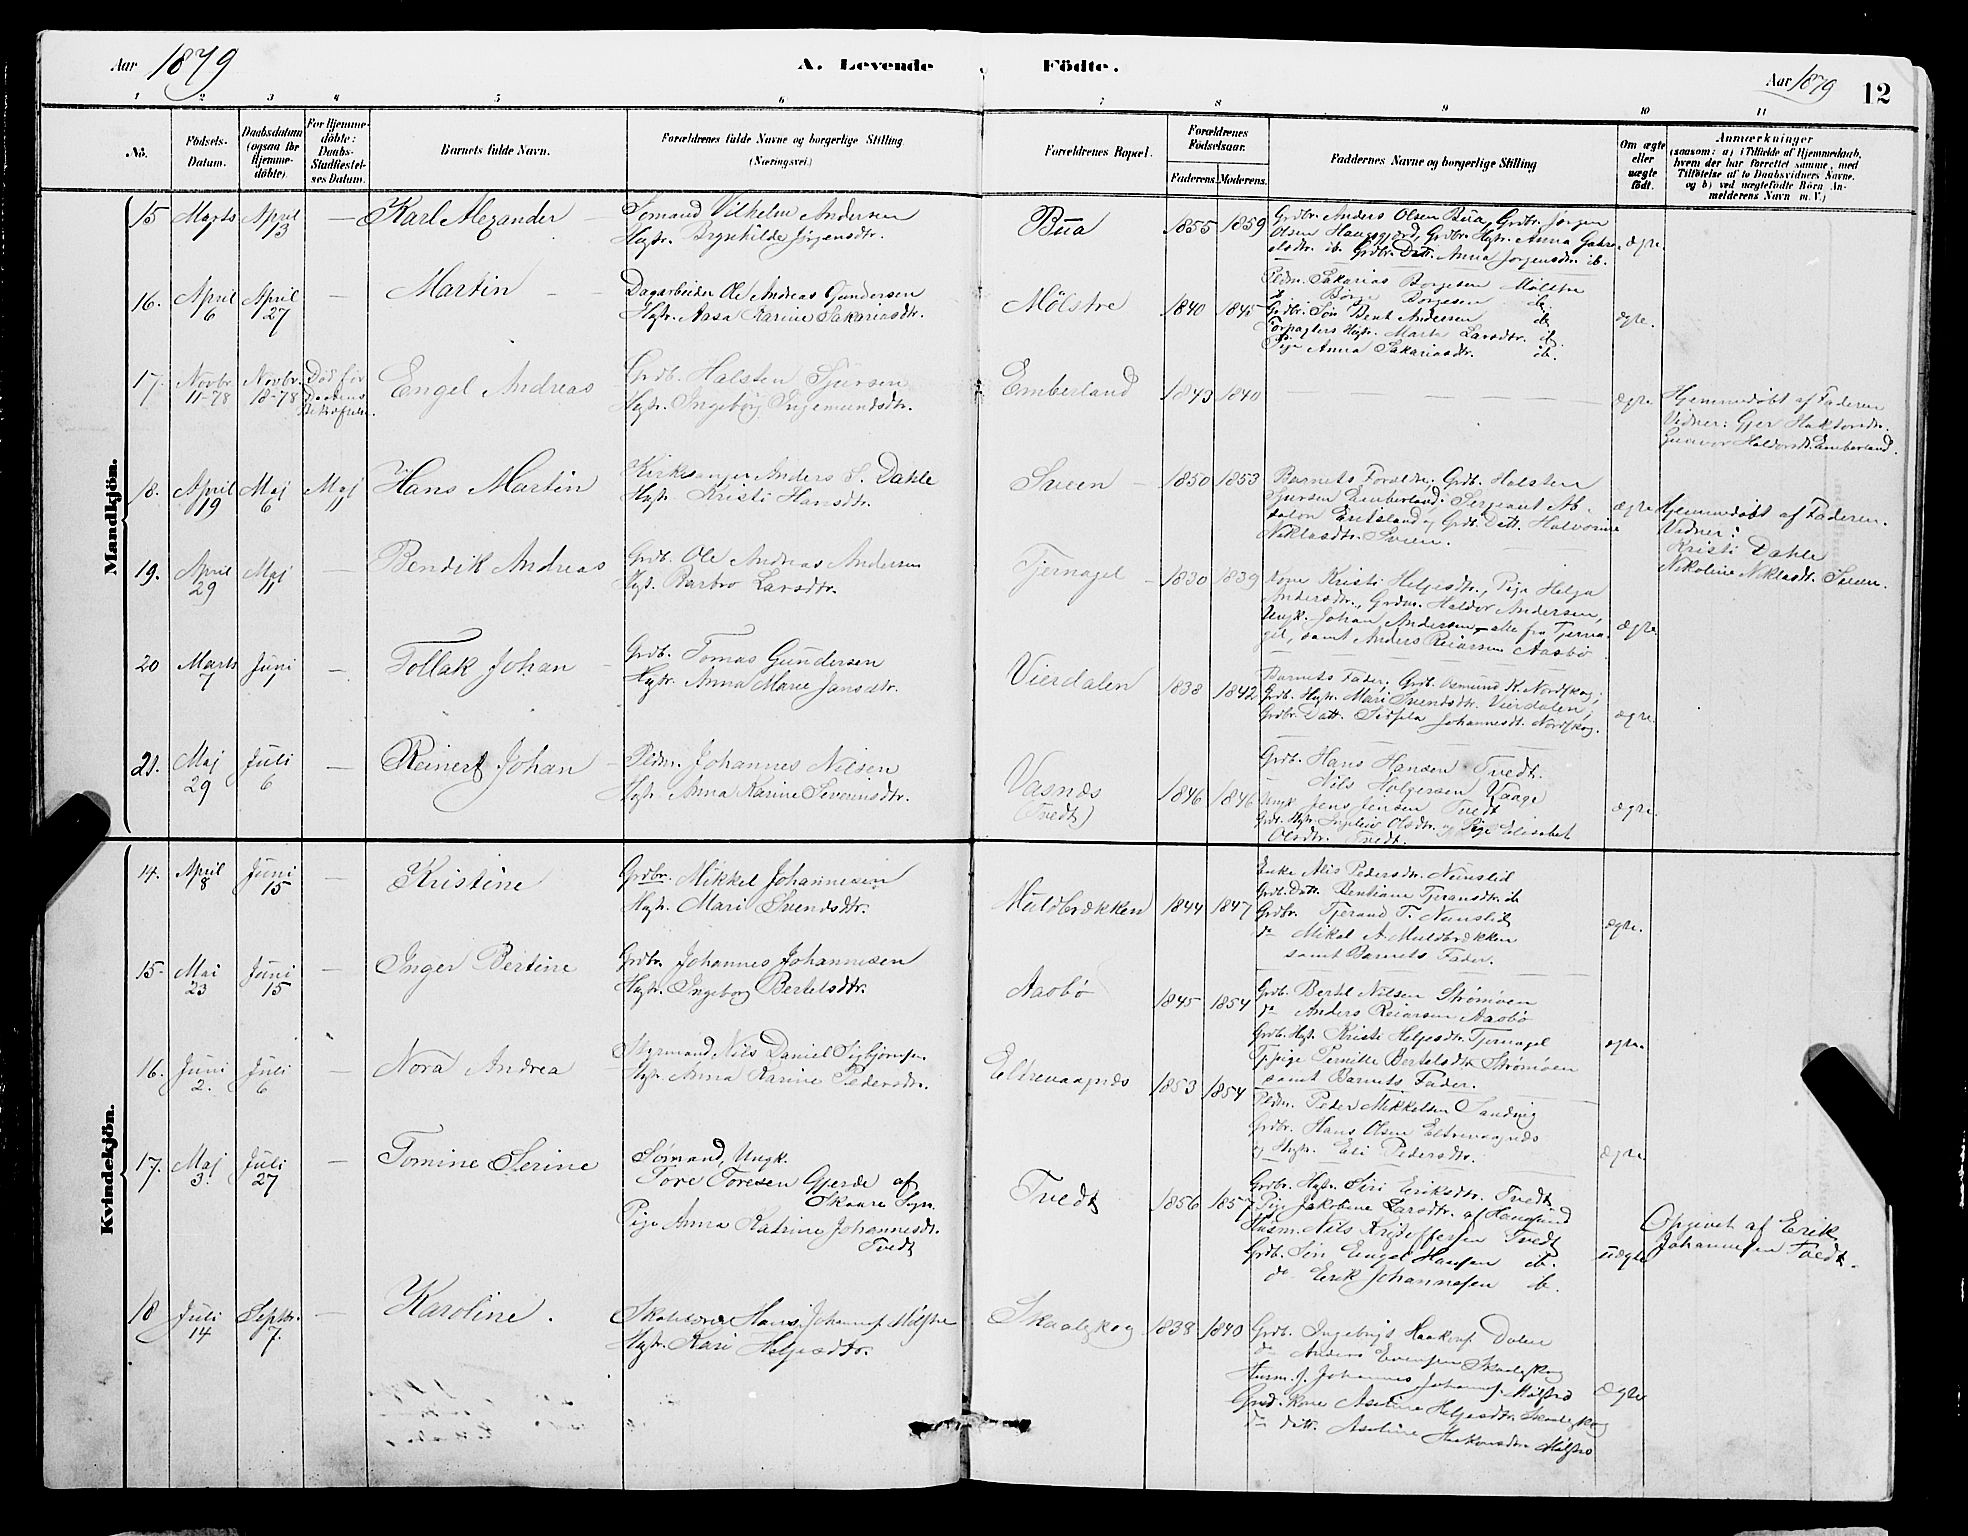 Aar 1879
A. Levende Födte.
Aar 1879
12
1 2 3 4 5 6 7 8 9 10 11
No.
Födsels-Datum.
Daabsdatum (ogsaa for Hjemme-döbte).
For Hjemme-döbte: Daabs-Stadfæstel-ses Datum.
Barnets fulde Navn.
Forældrenes fulde Navne og borgerlige Stilling
(Næringsvei.)
Forældrenes Bopæl.
Forældrenes Födselsaar.
Faderens. Moderens.
Faddernes Navne og borgerlige Stilling
Om ægte eller uægte födt.
Anmærkninger
(saasom: a) i Tilfælde af Hjemmedaab,
hvem der har forrettet samme, med
Tilföielse af to Daabsvidners Navne.
og b) ved uægtefödte Börn An-
melderens Navn m. V.)
Mandkjön.
15 Marts April 13 — Karl Alexander
Sömand Vilhelm Andersen
Hustr. Brynhilde Jörgensdtr.
Büa 1855 1859
Grdbr. Anders Olsen Büa, Grdbr. Jörgen
Olsen Haugsgjerd, Grdbr. Hustr. Anna
ib. Grdbr. Datt. Anna Jörgensdtr. ib.
ægte.
16. April 6 April 27 — Martin
Dagarbeider Ole Andreas Gundersen
Hustr. Aasa Karine Sakariasdtr.
Mölstre 1840 1845
Pedm. Sakarias Borgesen Mölstre
d. Börge Borgesen ib.
Grdbr. Sön Bent Andersen ib.
Forpagters Hustr. Marta Larsdtr. ib.
Pige Anna Sakariasdtr. ib.
ægte.
17. Novbr. 11-78 Novbr. 18-78 Död för Daabens Bekræftelse. Engel Andreas
Grdb. Halsten Sjursen
Hustr. Ingeborg Ingemundsdtr.
Emberland 1843 1840
ægte
Hjemmedöbt af Faderen
Vidner:
Emberland.
18. April 19 Maj 6 Maj 11 Hans Martin
Kirkesanger Anders S. Dahle
Hustr. Kristi Hansdtr.
Sveen 1850 1853
Barnets Forældre, Grdb. Halsten
Sjursen Emberland. Sergeant Ab-
salon Eriksland og Grdb. Datt. Halvorine
Niklasdtr. Sveen.
ægte
Hjemmedöbt af Faderen.
Vidner:
Kristi Dahle
Nikoline Niklasdt. Sveen.
19. April 29 Maj 11 — Bendik Andreas
Grdb. Ole Andreas Andersen
Hst. Barbro Larsdtr.
Tjernagel 1830 1839
Kone Kristi Helgesdtr., Pige Helga
Andersdtr., Grdm. Haldor Andersen,
Ungk. Johan Andersen, alle fra Tjerna-
gel, samt Anders Reiarsen Aasbö
ægte.
20 Marts 7 Juni 1 — Tollak Johan
Grdb. Tomas Gundersen
Hustr. Anna Marie Jansdtr.
Vierdalen 1838 1842
Barnets Fader, Grdb. Osmund K. Nordskog,
Grdb. Hustr. Mari Svendsdtr. Vierdalen,
Grdbr. Datt. Johannesdt. Nordskog.
ægte.
21. Maj 29 Juli 6 — Reinert Johan
Pedm. Johannes Nilsen
Hustr. Anna Karine Severinsdtr.
Vasnæs
(Tvedt)
1846 1846
Grdb. Hans Hansen Tvedt.
Nils Holgersen Vaage
Ungk. Jens Jensen Tvedt
Grdb. Hustr. Ingeleiv Olsdtr. og Pige Elisabet
Olsdtr. Tvedt.
ægte.
Kvindekjön.
14. April 8 Juni 15 Kristine
Grdbr. Mikkel Johannesen
Hustr. Mari Svendsdtr.
Muldbrækken 1844 1847
Enke Alis Pedersdtr. Nünslid
Grdb. Datt. Bentiane Tjeransdtr. ib
Grdbr. Tjerand T. Nünslid
do Mikal A. Muldbrækken
samt Barnets Fader.
ægte.
15. Mai 23 Juni 15 — Inger Bertine
Grdbr. Johannes Johannesen
Hustr. Ingeborg Bertelsdtr.
Aasbö 1845 1854
Grdb. Bertel Nilsen Strömöen
do Anders Reiarsen Aasbö
Grdb. Hustr. Kristi Helgesdtr. Tjernagel
Tjpige Pernille Bertelsdtr. Strömöen
samt Barnets Fader.
ægte.
16. Juni 2. Juli 6 — Nora Andrea
Styrmand Nils Daniel Sigbjörnsen
Hustr. Anna Karine Pedersdtr.
Eltrevaagnæs 1853 1854
Pedm. Peder Mikkelsen Sandvig
Grdbr. Hans Olsen Eltrevaagnæs
og Hustr. Eli Pedersdtr.
ægte.
17. Maj 3. Juli 27 — Tomine Serine
Sömand, Ungk.
Tore Toresen Gjerde af
Skaare Sogn.
Pige Anna Katrine Johannesdtr.
Tvedt
Tvedt 1856 1857
Grdbr. Hustr. Siri Eriksdtr. Tvedt
Pige Jakobine Larsdtr. af Haugesund
Husm. Nils Kristoffersen Tvedt
Grdb. Sön Engel Hansen ib.
do Erik Johannesen ib.
uægte
Opgivet af Erik
Johannesen Tvedt.
18 Juli 14 Septbr. 7. — Karoline.
Skolelærer Hans Johannes. Mölstre
Hustr. Kari Helgesdtr.
Skaalskog 1838 1840
Grdb. Ingebrigt Haakons. Dalen
do Anders Evensen Skaalskog
Husm. J. Johannes Johannes. Mölstre
Grdb. Kone Aseline Helgesdtr. Skaalskog
do datt. Aseline Haakonsdtr. Mölstre
ægte